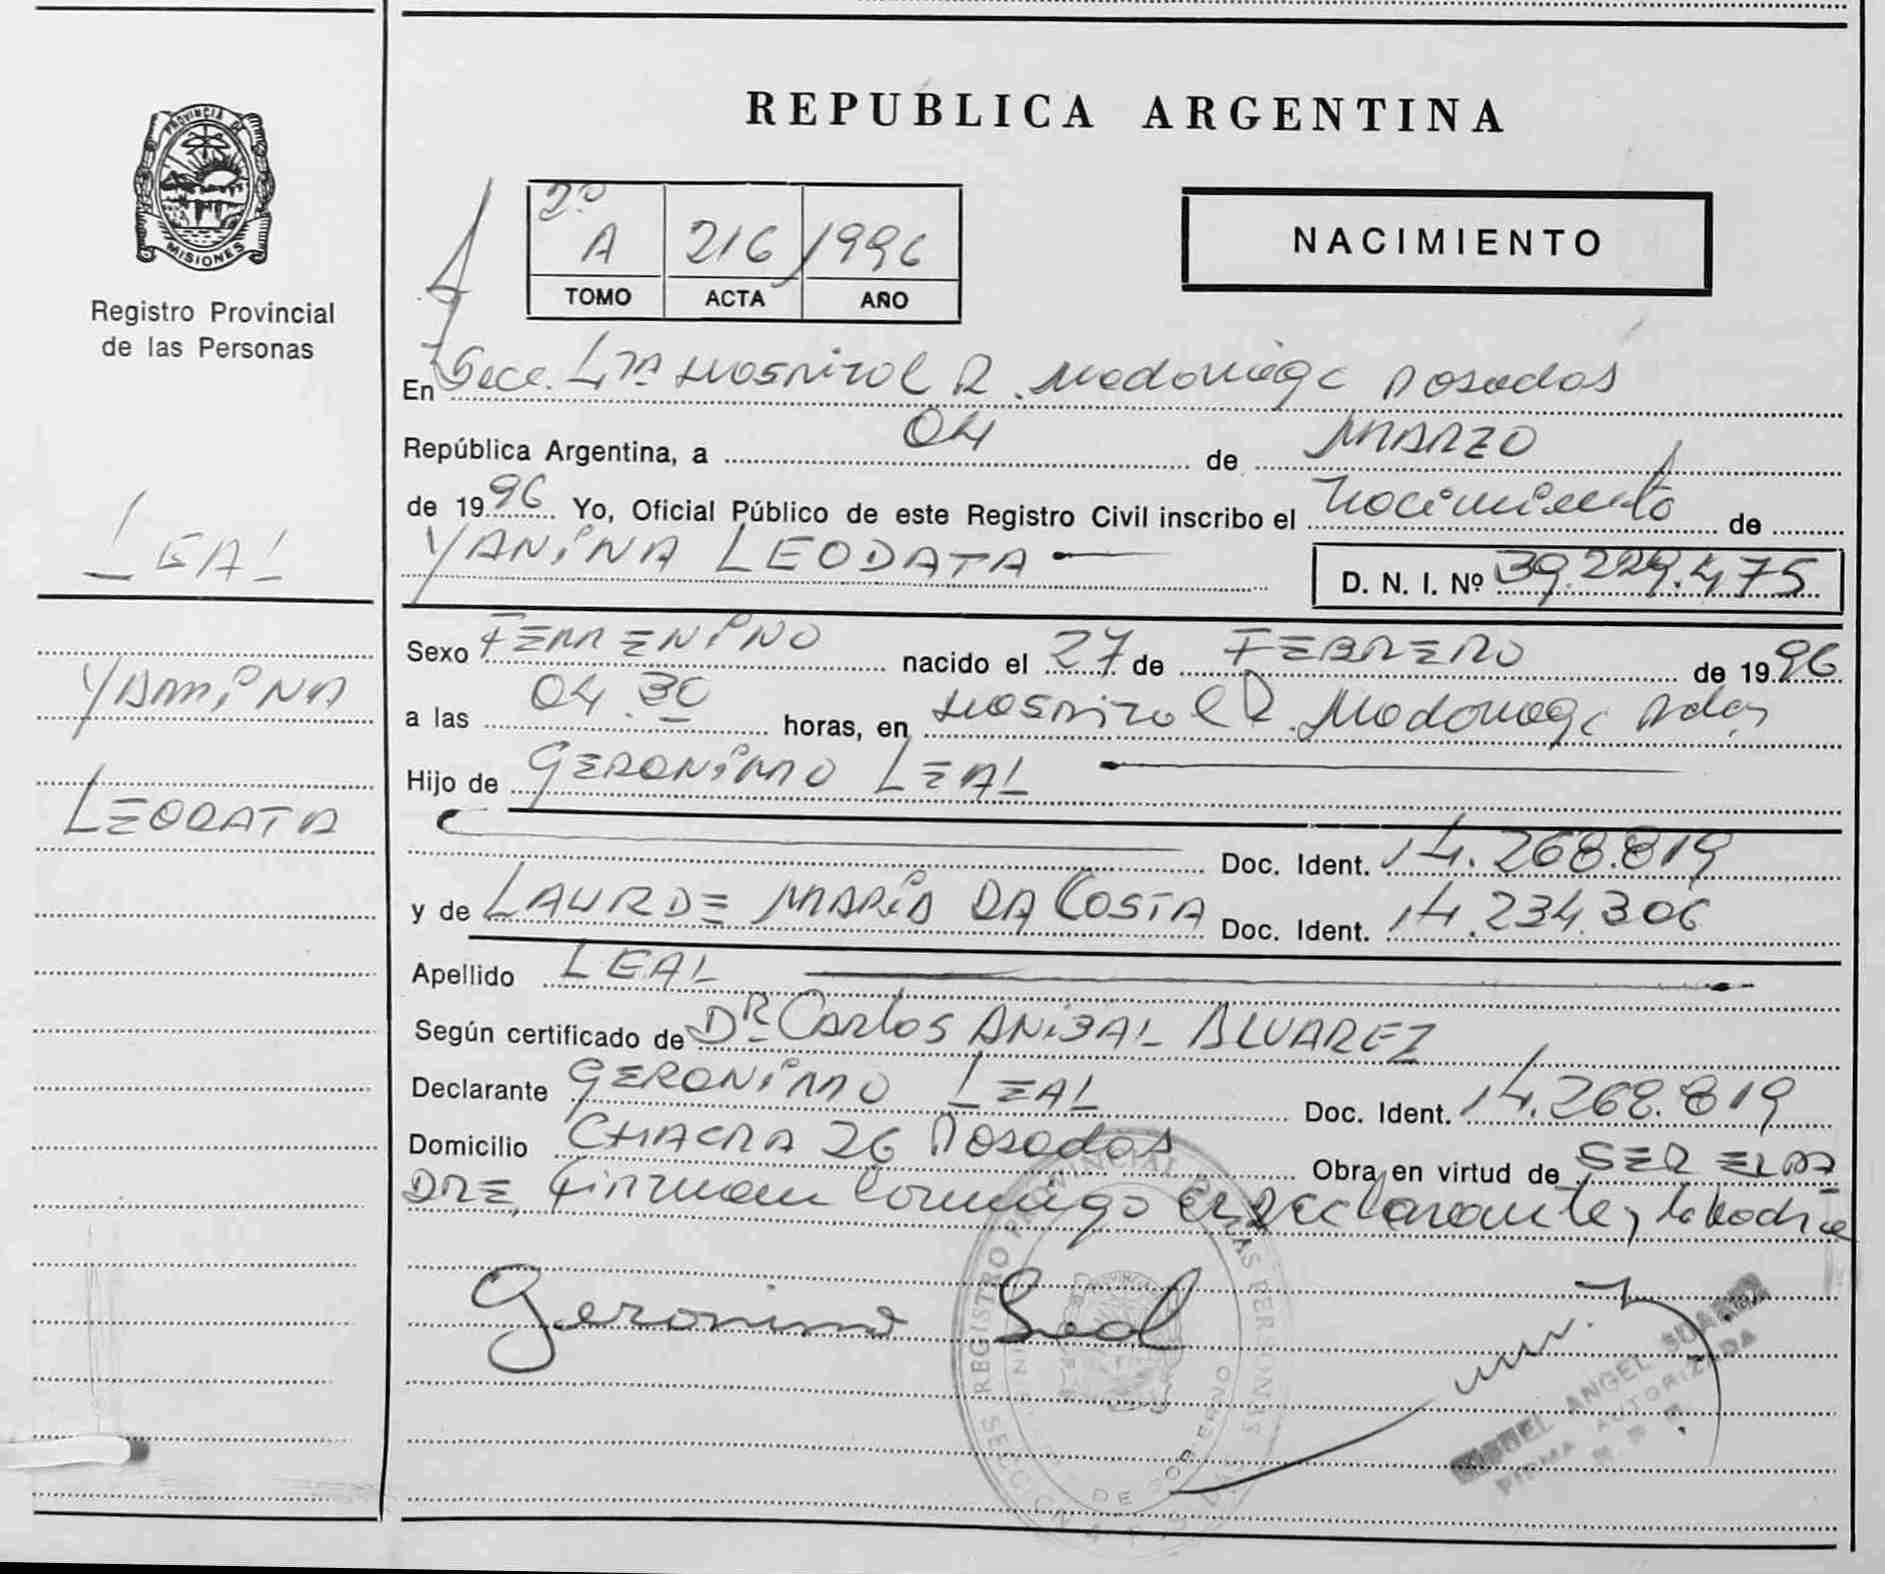 PROVINCIA DE
MISIONES
Registro Provincial
de las Personas
LEAL
YANINA
LEODATA
REPUBLICA ARGENTINA
2º A 216 1996
TOMO ACTA AÑO
NACIMIENTO
En Secc. 4ta Hospital R. Madariaga Posadas
República Argentina, a 04 de MARZO
de 1996 Yo, Oficial Público de este Registro Civil inscribo el nacimiento de
YANINA LEODATA D. N. I. Nº 39.229.475
Sexo FEMENINO nacido el 27 de FEBRERO de 1996
a las 04.30 horas, en Hospital R. Madariaga Pdas
Hijo de GERONIMO LEAL
Doc. Ident. 14.268.819
y de LAURDE MARIA DA COSTA Doc. Ident. 14.234.306
Apellido LEAL
Según certificado de DR Carlos ANIBAL ALVAREZ
Declarante GERONIMO LEAL Doc. Ident. 14.268.819
Domicilio CHACRA 26 Posadas Obra en virtud de SER EL PA
DRE, firman conmigo el declarante, la madre
Geronimo Leal
REGISTRO PROVINCIAL DE LAS PERSONAS
MIGUEL ANGEL SUAREZ
FIRMA AUTORIZADA